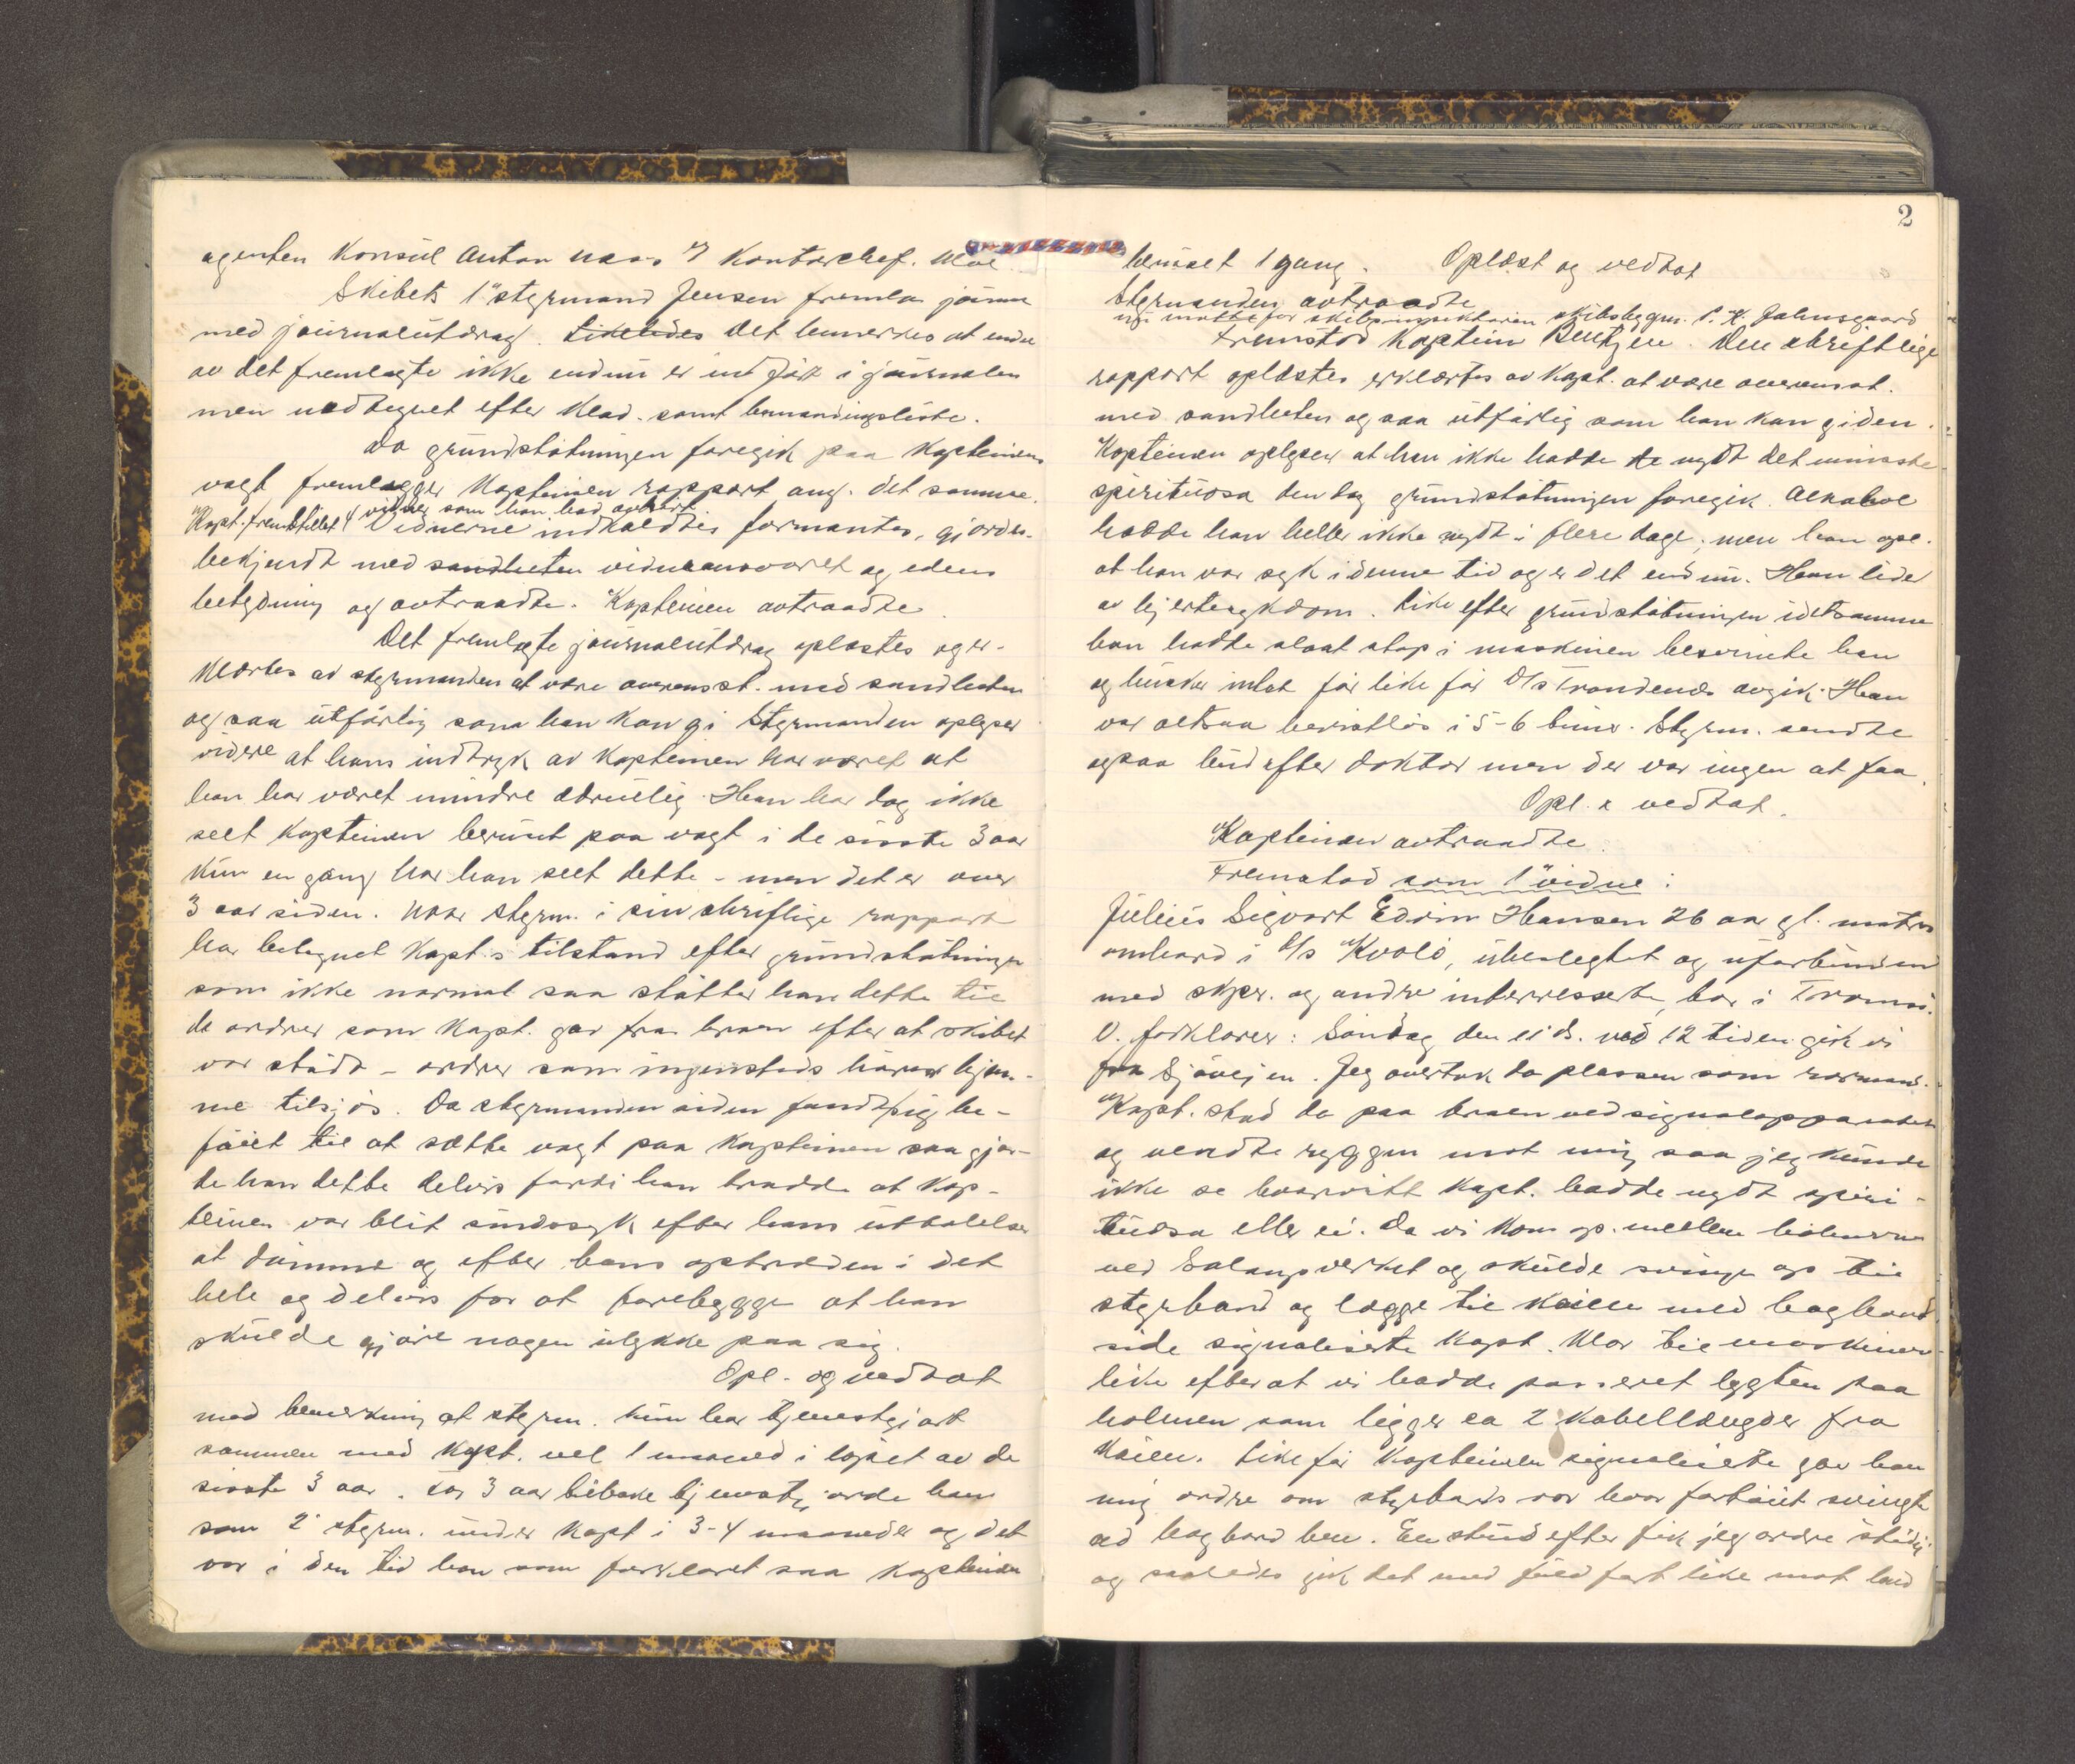 agenten Konsul Anton Naas & Kontorchef. Moe
Skibets 1ste styrmand Jensen fremla journa
med journalutdrag. Likeledes Det bemerkes at endel
av det fremlagte ikke endnu er indført i journalen
men nedtegnet efter klad. samt bemandingsliste.
Da grundstøtningen foregik paa Kapteinens
vagt fremlægger Kapteinen rapport ang. det samme.
Kapt. fremstillet 4 vidner som han bad avhørt
Vidnerne indkaldtes formantes, gjordes
bekjendt med sandheten vidneansvaret og edens
betydning og avtraadte. Kapteinen avtraadte.
Det fremlagte journalutdrag oplæstes og er-
klærtes av styrmanden at være overensst. med sandheten
og saa utførlig som han kan gi. Styrmanden oplyser
videre at hans indtryk av Kapteinen har været at
han har været mindre ædruelig. Han har dog ikke
seet Kapteinen beruset paa vagt i de siste 3 aar
Kun en gang har han seet dette - men det er over
3 aar siden. Naar styrm. i sin skriftlige rapport
har betegnet Kapt.s tilstand efter grundstøtningen
som ikke normal saa støtter han dette til
de ordrer som Kapt. gav fra broen efter at skibet
var stødt - ordrer som ingensteds hører hjem-
me tilsjøs. Da styrmanden siden fandt sig be-
føiet til at sætte vagt paa Kapteinen saa gjor-
de han dette delvis fordi han trodde at Kap-
teinen var blit sindssyk efter hans uttalelser
at dømme og efter hans optræden i det
hele og delvis for at forebygge at han
skulde gjøre nogen ulykke paa sig.
Opl. og vedtat
med bemerkning at styrm. kun har tjenestgjort
sammen med Kapt. vel 1 maaned i løpet av de
siste 3 aar. For 3 aar tilbake tjenestgjorde han
som 2. styrm. under Kapt i 3-4 maaneder og det
var i den tid han som forklaret saa Kapteinen
2
beruset 1 gang. Oplæst og vedtat
Styrmanden avtraadte
nu møtte for skibsinspektøren skibsbygm. P. K. Jahnsgaard
Fremstod Kaptein Bentzen. Den skriftlige
rapport oplæstes erklærtes av Kapt. at være overensst.
med sandheten og saa utførlig som han kan gi den.
Kapteinen oplyser at han ikke hadde nydt det mindste
spirituosa den dag grundstøtningen foregik. Alkohol
hadde han heller ikke nydt i flere dage; men han opl.
at han var syk i denne tid og er det endnu. Han lider
av hjertesykdom. Like efter grundstøtningen idetsamme
han hadde slaat stop i maskinen besvimte han
og husker intet før like før D/s Trondenes avgik. Han
var altsaa bevistløs i 5-6 timer. Styrm. sendte
ogsaa bud efter doktor men der var ingen at faa.
Opl. & vedtat.
Kapteinen avtraadte.
Fremstod som 1ste vidne:
Julius Sigvart Edvin Hansen 26 aar gl. matros
ombord i D/s Kvalø, ubeslegtet og uforbunden
med skper. og andre interresserte, bor i Tromsø.
V. forklarer: Søndag den 11 ds. ved 12 tiden gik vi
fra Sjøvejen. Jeg overtok da plassen som rormand.
Kapt. stod da paa broen ved signalapparatet
og vendte ryggen mot mig saa jeg kunde
ikke se hvorvitt Kapt. hadde nydt spiri-
tuosa eller ei. Da vi kom op mellem holmerne
ved Salangsverket og skulde svinge op til
styrbord og lægge til kaien med bagbord
side signaliserte Kapt. klar til maskinen
like efter at vi hadde passeret lygten paa
holmen som ligger ca 2 kabellængder fra
Kaien. Like før Kapteinen signaliserte gav han
mig ordre om styrbords ror hvor fartøiet svingte
ad bagbord hen. En stund efter fik jeg ordre stødig
og saaledes gik det med fuld fart like mot land